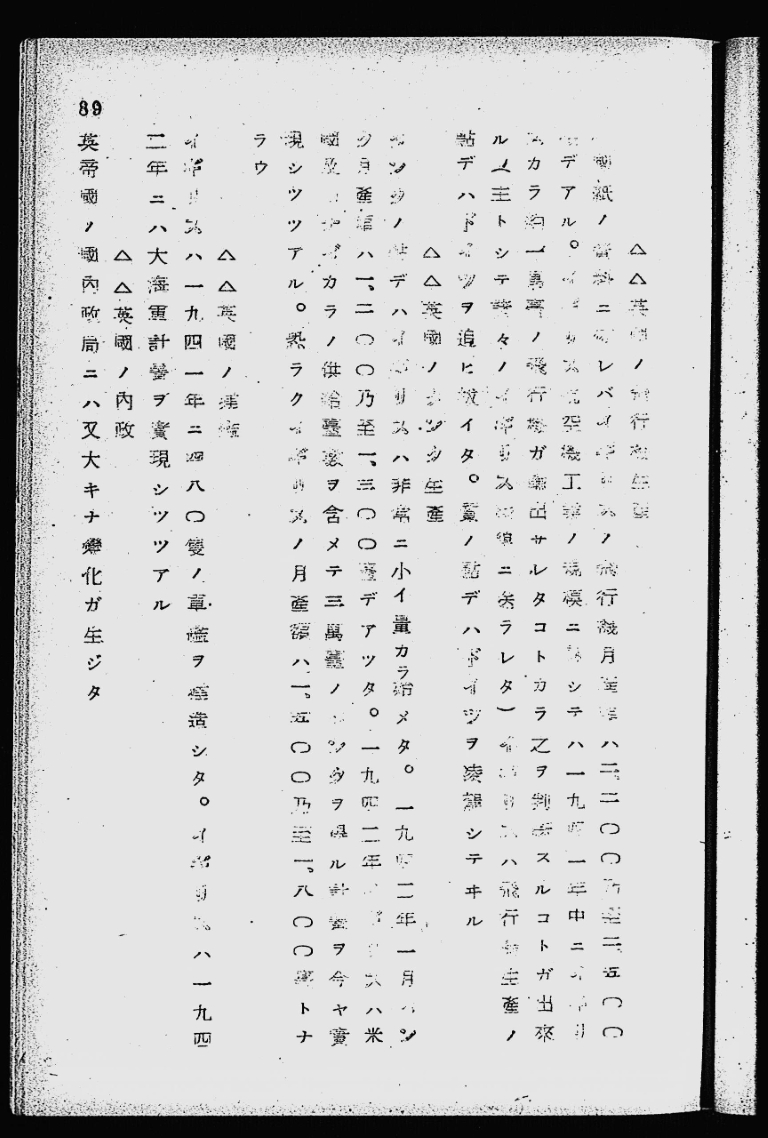 △△英國ノ飛行機生産
國紙ノ資料ニ依レバイギリスノ飛行機月産率ハ二、二〇〇乃至二、五〇〇
デアル。イギリス航空機工業ノ規模ニ シテハ一九四一年中ニイギリ
スカラ約一萬臺ノ飛行機ガ輸出サレタコトカラ之ヲ判斷スルコトガ出來
ル(主トシテ諸々ノイギリス領ニ送ラレタ)イギリスハ飛行機生産ノ
點デハドイツヲ追ヒ抜イタ。質ノ點デハドイツヲ凌駕シテヰル
△△英國ノタンク生産
タンクノ デハイギリスハ非常ニ小イ量カラ始メタ。一九四二年一月ハタン
ク月産率ハ一、二〇〇乃至一、三〇〇臺デアツタ。一九四二年イギリスハ米
國及 カラノ供給臺數ヲ含メテ三萬臺ノタンクヲ得ル計畫ヲ今ヤ實
現シツツアル。恐ラクイギリスノ月産額ハ一、五〇〇乃至一、八〇〇臺トナ
ラウ
△△英國ノ
イギリスハ一九四一年ニ四八〇隻ノ軍艦ヲ建造シタ。イギリスハ一九四
二年ニハ大海軍計畫ヲ實現シツツアル
△△英國ノ內政
英帝國ノ國內政局ニハ又大キナ變化ガ生ジタ
89